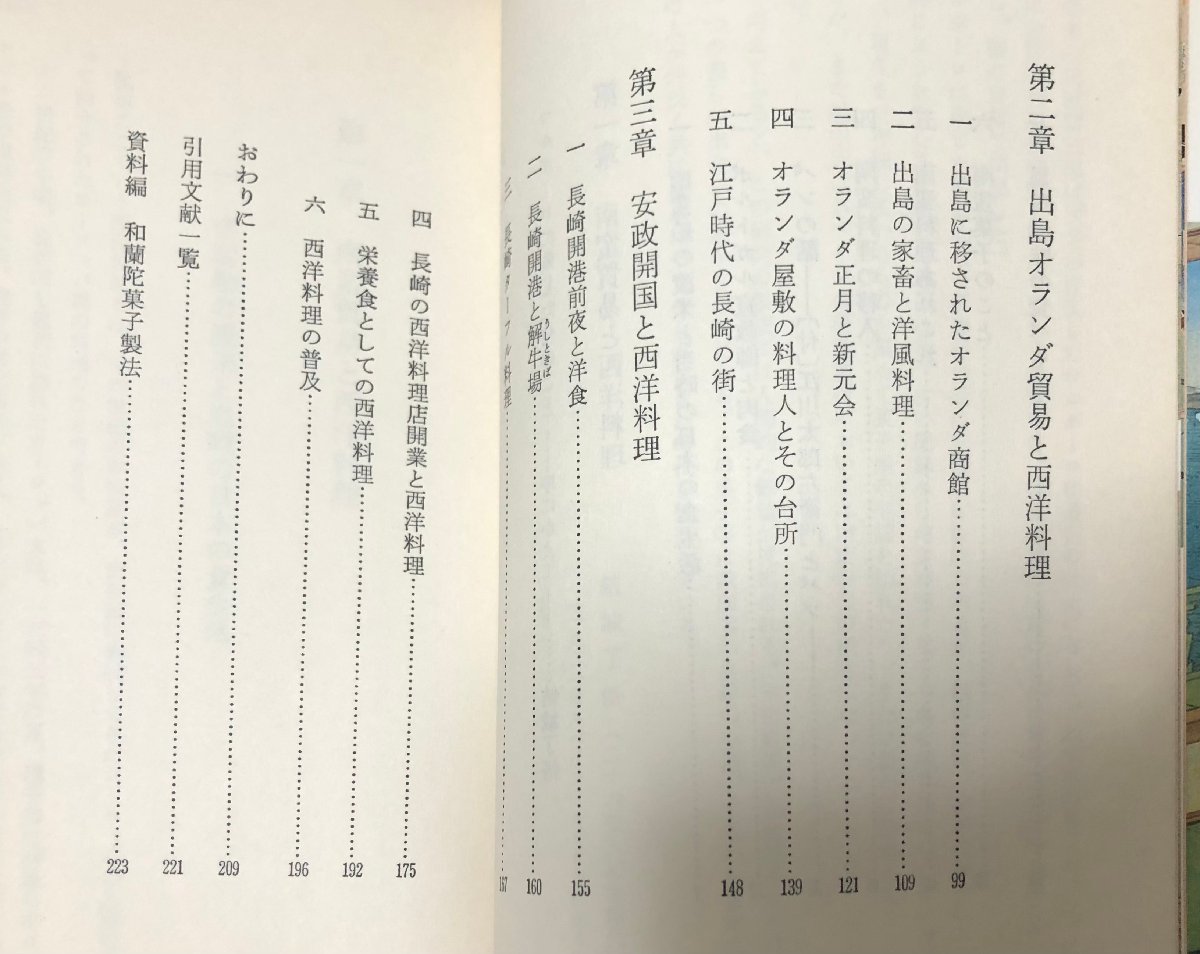 第二章　出島オランダ貿易と西洋料理
一　出島に移されたオランダ商館……99
二　出島の家畜と洋風料理……109
三　オランダ正月と新元会……121
四　オランダ屋敷の料理人とその台所……139
五　江戸時代の長崎の街……148
第三章　安政開国と西洋料理
一　長崎開港前夜と洋食……155
二　長崎開港と解牛場……160
うしときば
三　長崎ターフル料理……167
四　長崎の西洋料理店開業と西洋料理……175
五　栄養食としての西洋料理……192
六　西洋料理の普及……196
おわりに……209
引用文献一覧……221
資料編　和蘭陀菓子製法……223